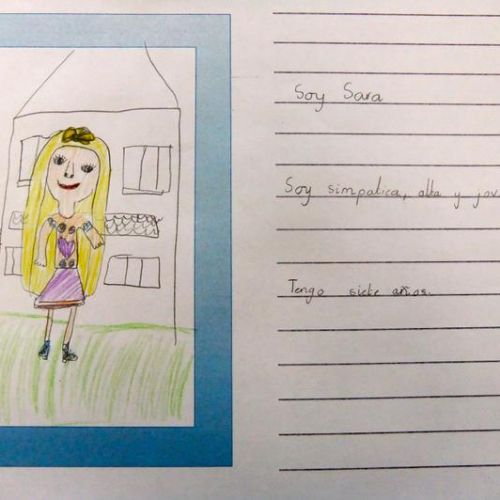 Soy Sara
Soy simpatica, alta y jov
Tengo siete años.